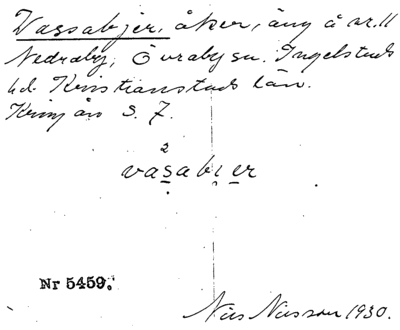 Vassabjer, åker, äng å nr. 11
Nedraby, Övraby sn. Ingelstads
hd. Kristianstads län.
S. 7.
2
vasabier
Nr 5459.
Nils Nilsson 1930.